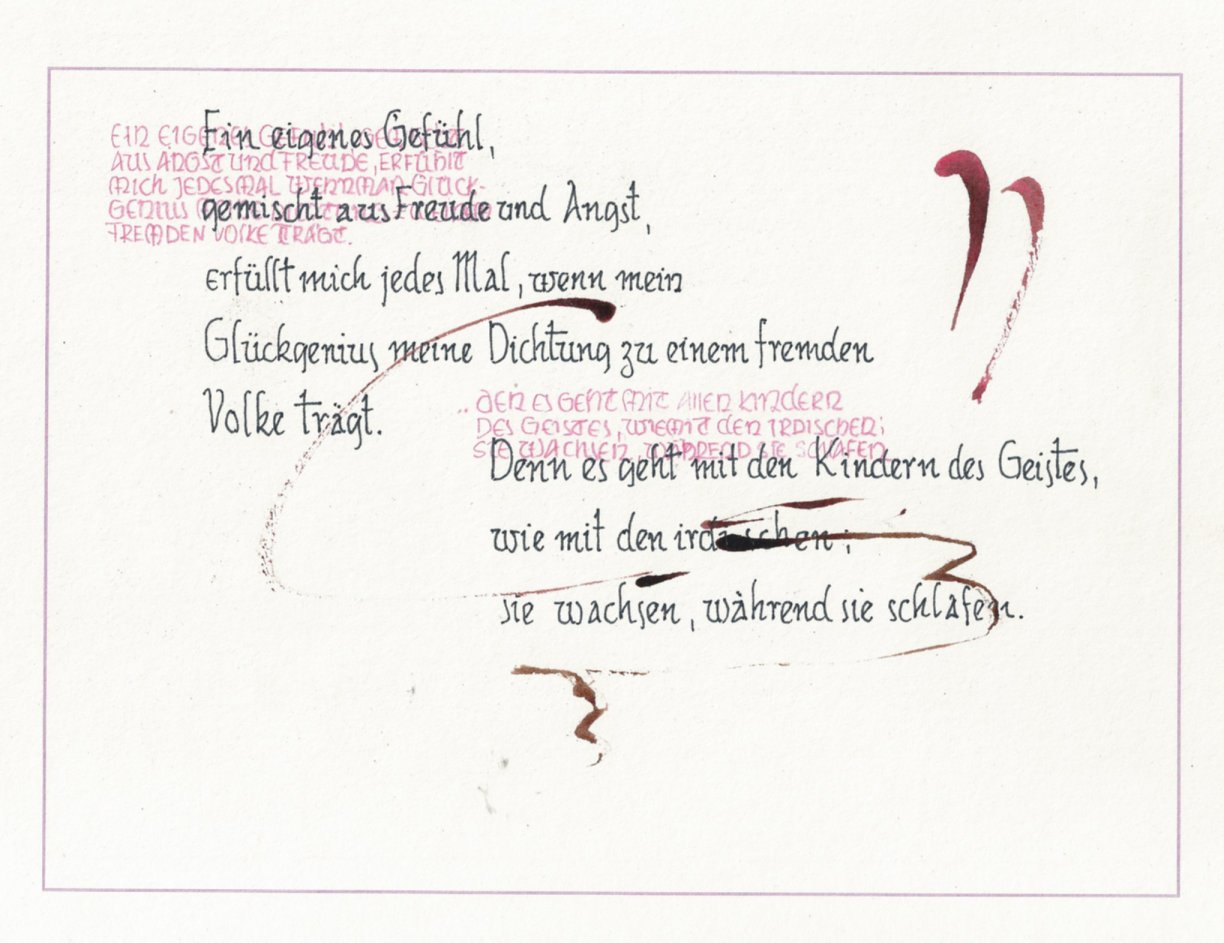 EIN EIGENES
AUS ANGST UND FREUDE, ERFÜHLT
MICH JEDESMAL WENN MAN GLÜCK-
GENIUS
FREMDEN VOLKE TRÄGT.
Ein eigenes Gefühl,
gemischt aus Freude und Angst,
erfüllt mich jedes Mal, wenn mein
Glückgenius meine Dichtung zu einem fremden
Volke trägt.
.. DEN ES GEHT MIT ALLEN KINDERN
DES GEISTES, WIE MIT DEN IRDISCHEN;
SIE WACHSEN, WÄHREND SIE SCHAFEN
Denn es geht mit den Kindern des Geistes,
wie mit den irdischen;
sie wachsen, während sie schlafen.